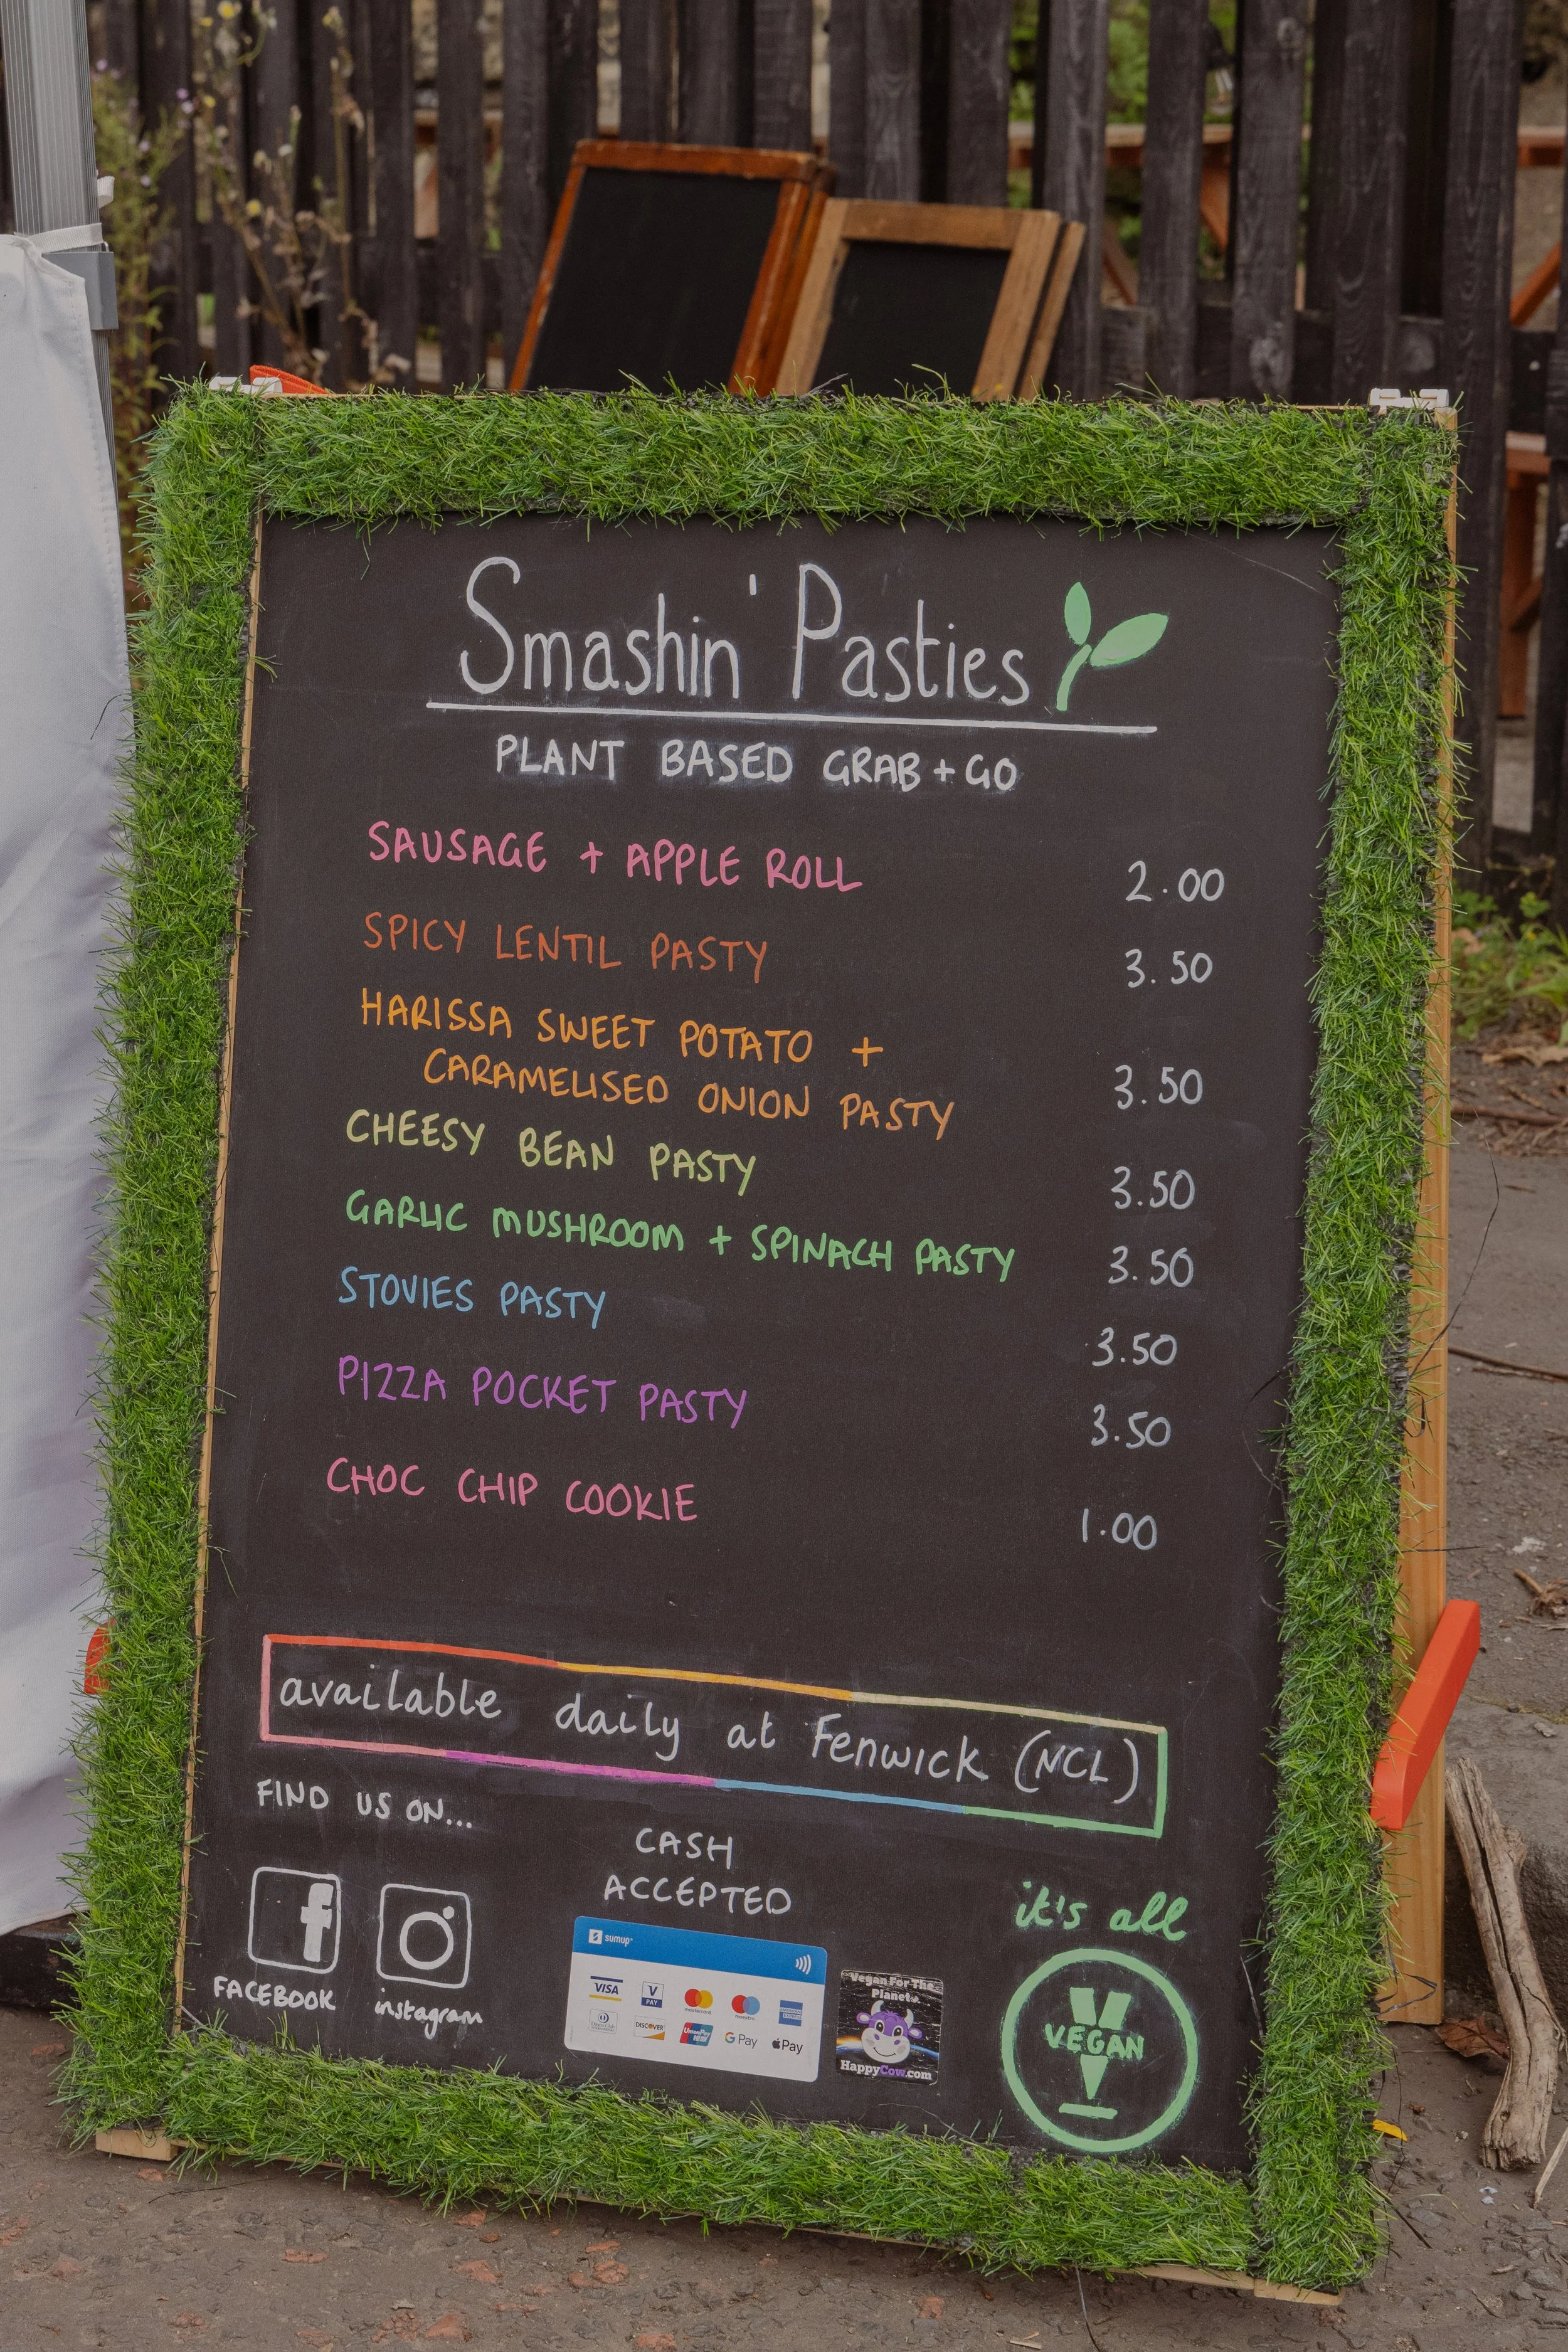 Smashin' Pasties
PLANT BASED GRAB + GO
SAUSAGE + APPLE ROLL 2.00
SPICY LENTIL PASTY 3.50
HARISSA SWEET POTATO +
CARAMELISED ONION PASTY 3.50
CHEESY BEAN PASTY 3.50
GARLIC MUSHROOM + SPINACH PASTY 3.50
STOVIES PASTY 3.50
PIZZA POCKET PASTY 3.50
CHOC CHIP COOKIE 1.00
available daily at Fenwick (NCL)
FIND US ON...
FACEBOOK
instagram
CASH
ACCEPTED
sumup
VISA V PAY mastercard maestro
DISCOVER UnionPay G Pay Pay
Vegan For The
Planet
HappyCow.com
it's all
VEGAN